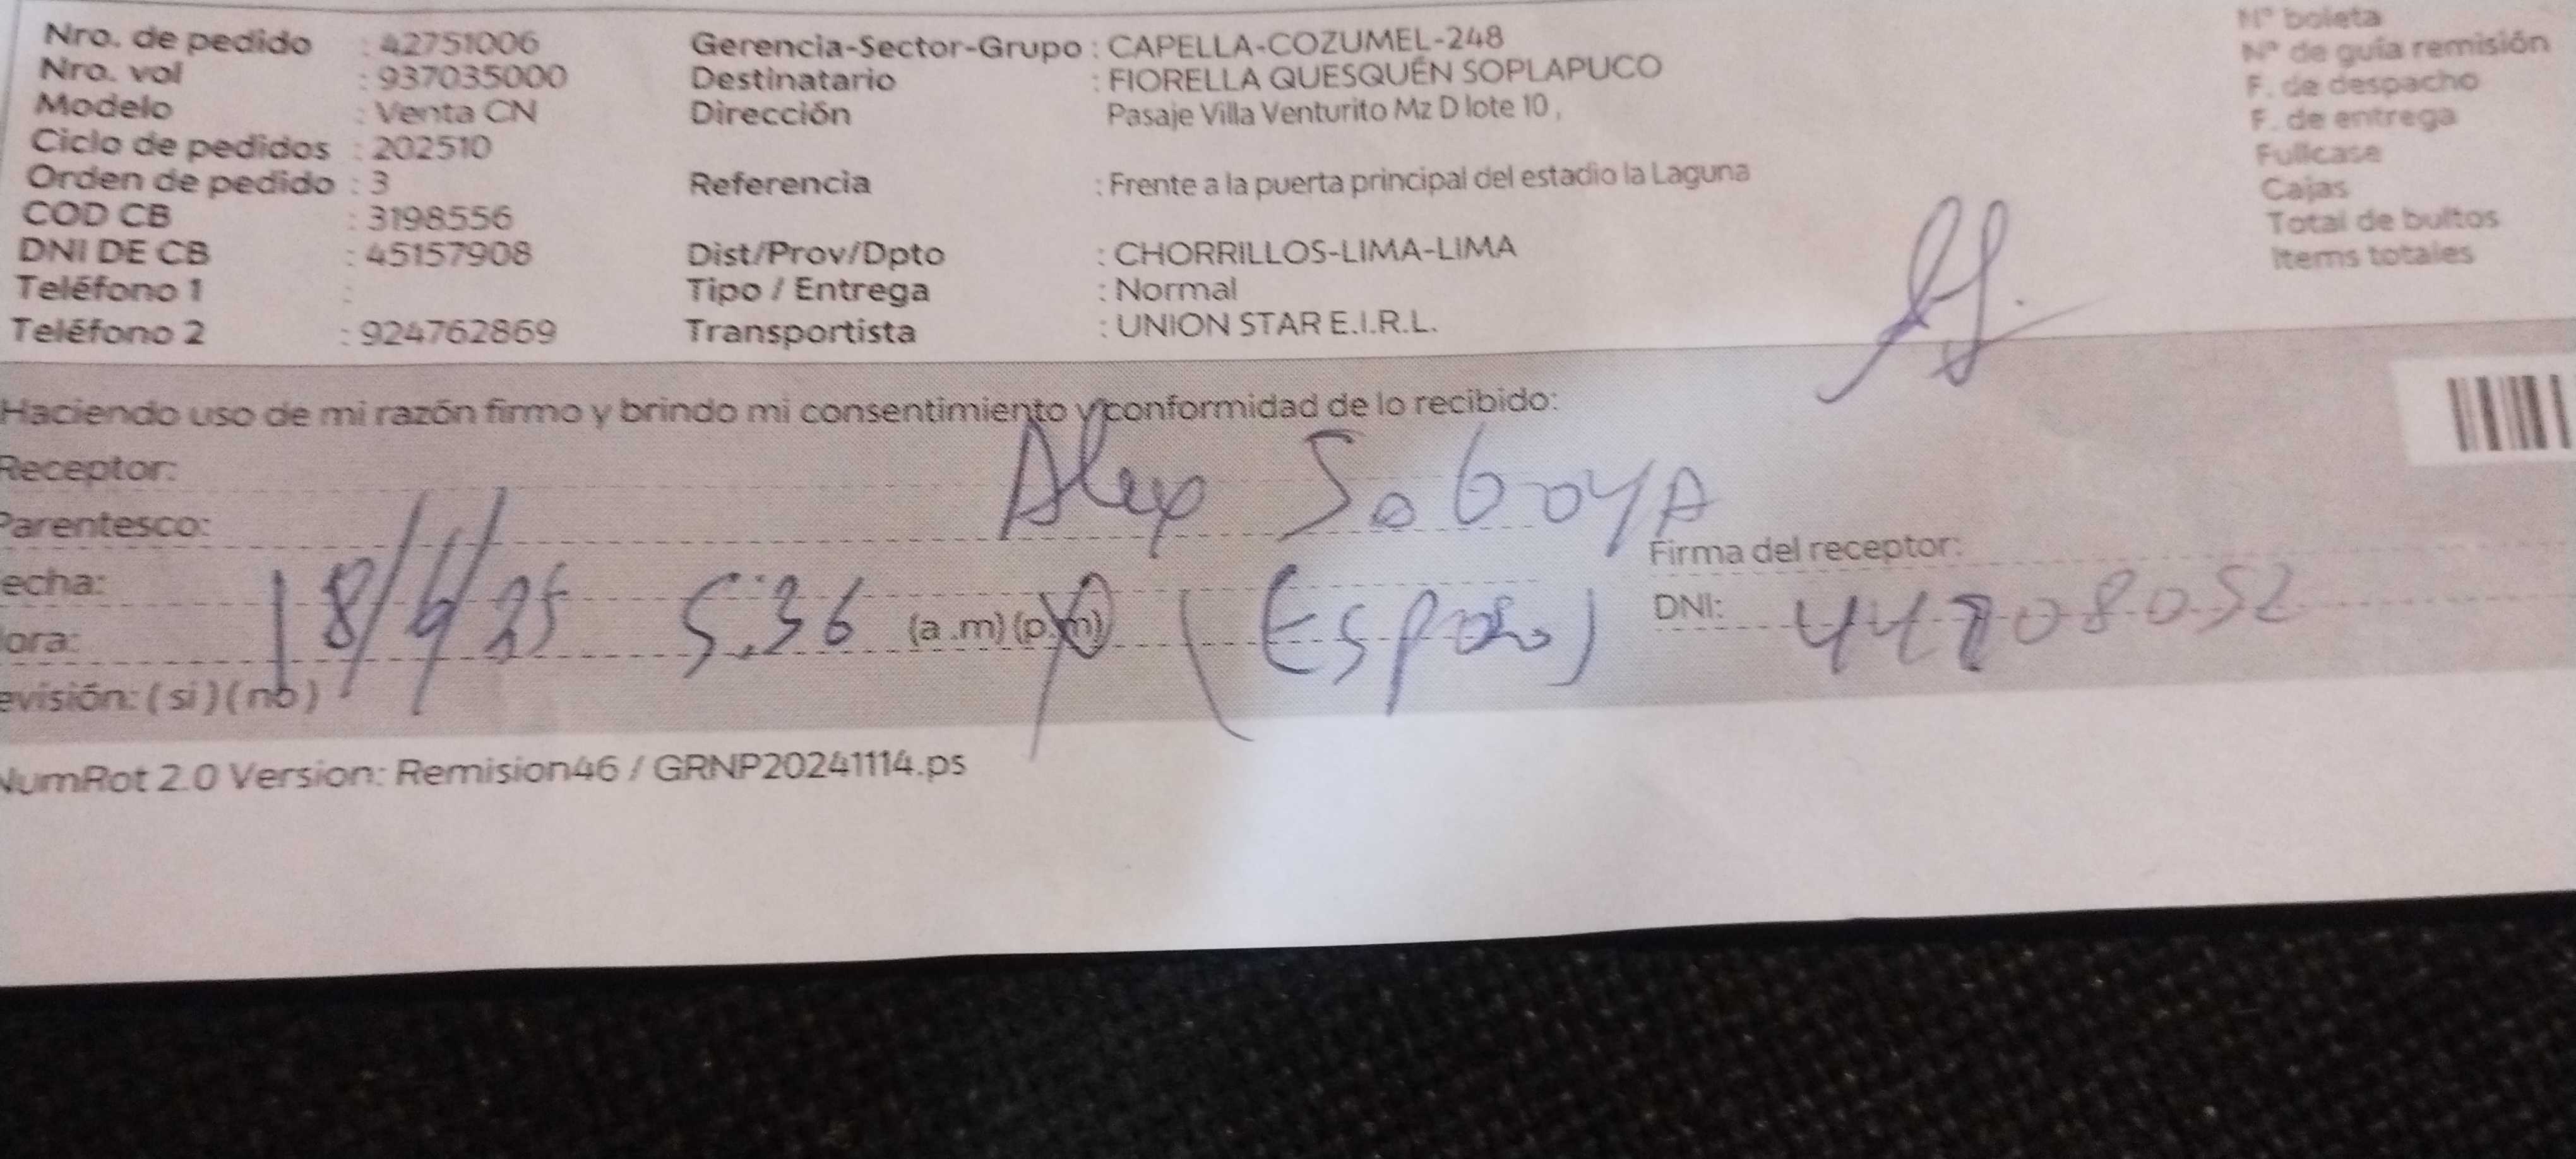 Nro. de pedido : 42751006 Gerencia-Sector-Grupo : CAPELLA-COZUMEL-248 N° boleta
Nro. vol : 937035000 Destinatario : FIORELLA QUESQUÉN SOPLAPUCO N° de guía remisión
Modelo : Venta CN Dirección Pasaje Villa Venturito Mz D lote 10 , F. de despacho
Ciclo de pedidos : 202510 F. de entrega
Orden de pedido : 3 Referencia : Frente a la puerta principal del estadio la Laguna Fullcase
COD CB : 3198556 Cajas
DNI DE CB : 45157908 Dist/Prov/Dpto : CHORRILLOS-LIMA-LIMA Total de bultos
Teléfono 1 : Tipo / Entrega : Normal Items totales
Teléfono 2 : 924762869 Transportista : UNION STAR E.I.R.L.
Haciendo uso de mi razón firmo y brindo mi consentimiento y conformidad de lo recibido:
Receptor: Alex Saboya
Parentesco:
echa: Firma del receptor:
ora: 18/6/25 5:36 (a .m) (p.m) (Esposo) DNI:
evisión: ( si ) ( no )
NumRot 2.0 Version: Remision46 / GRNP20241114.ps